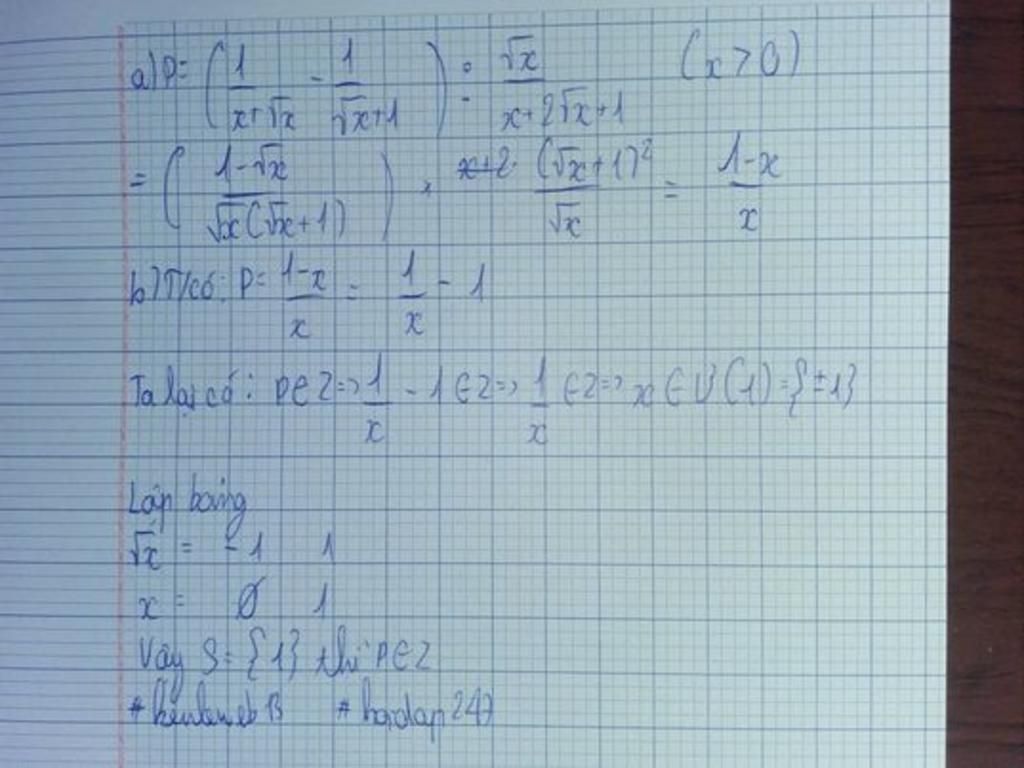 a) P = (1/(x+√x) - 1/(√x+1)) : √x/(x+2√x+1) (x > 0)
= ((1-√x)/(√x(√x+1))) · (√x+1)²/√x = (1-x)/x
b) T/có: P = (1-x)/x = 1/x - 1
Ta lại có: P∈Z => 1/x - 1 ∈ Z => 1/x ∈ Z => x ∈ Ư(1) = {±1}
Lập bảng
√x = -1 1
x = Ø 1
Vậy S = {1} thì P∈Z
# hoidap247